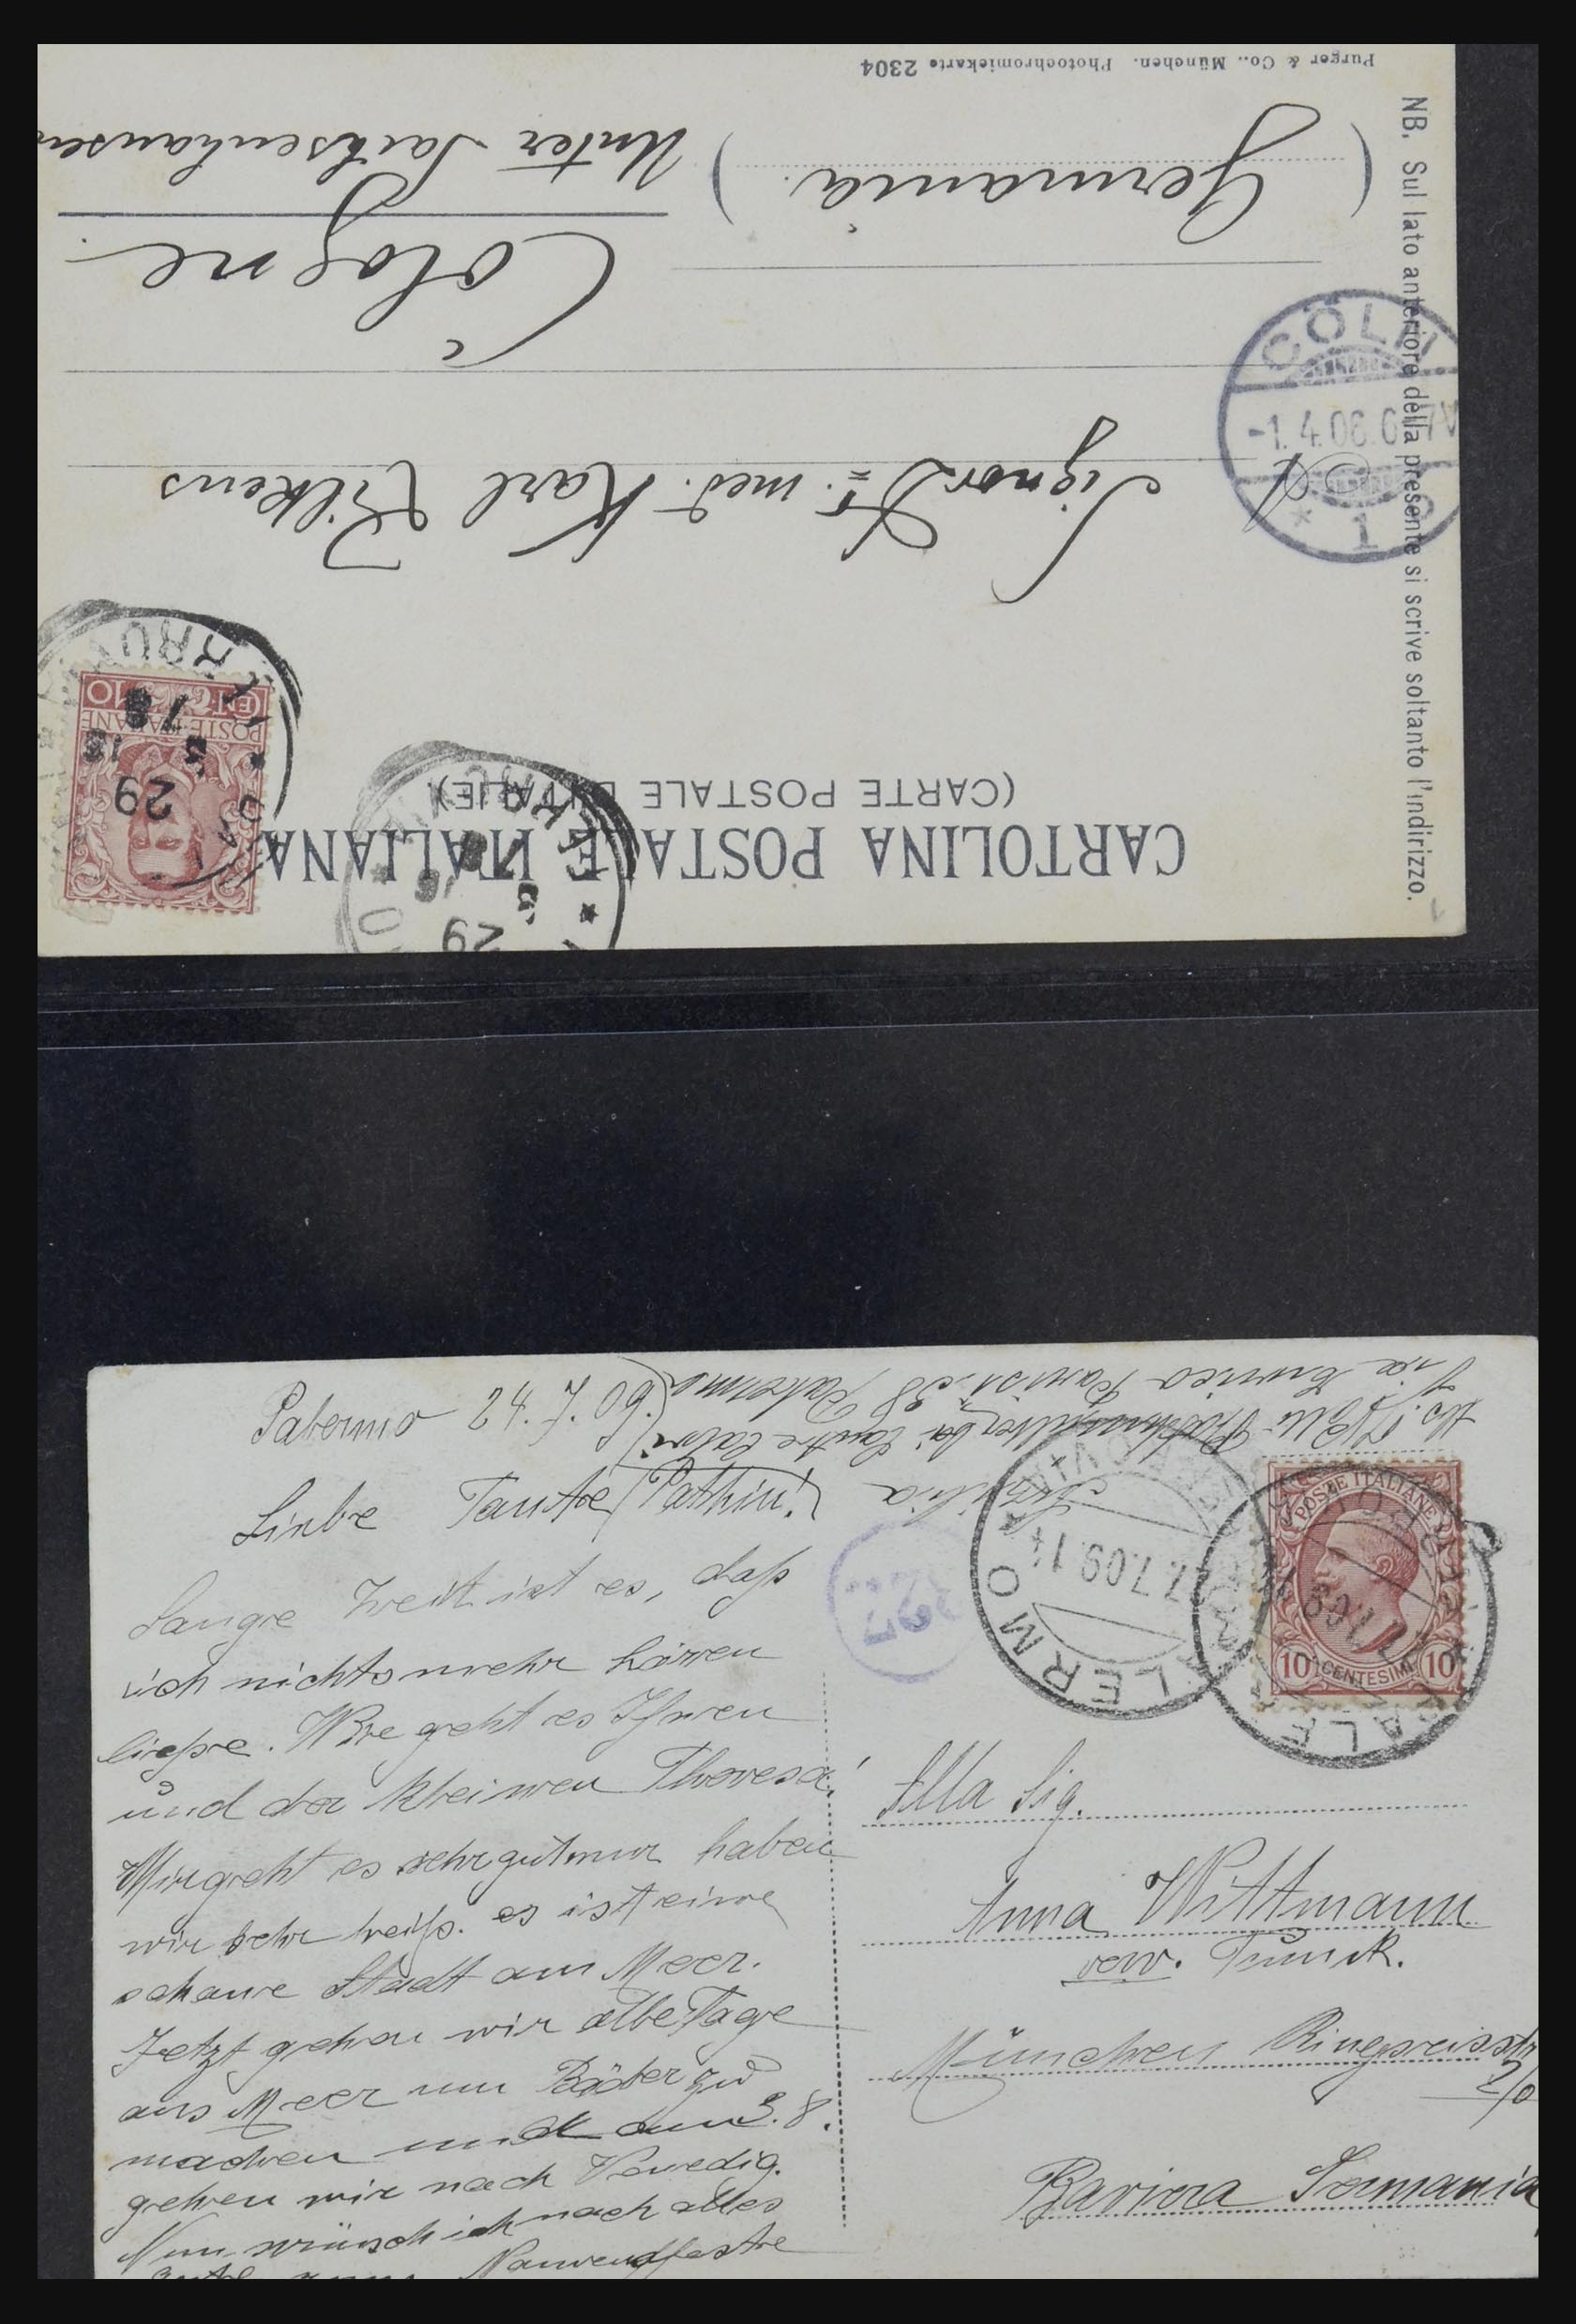 CARTOLINA POSTALE ITALIANA
(CARTE POSTALE D'ITALIE)
29
3
29
3
POSTE ITALIANE
CENT. 10
Signor Dr. med. Karl Vilkens
Cologne
Germania.
( )
Unter Sachsenhausen
Purger & Co., München. Photochromiekarte 2304
NB. Sul lato anteriore della presente si scrive soltanto l'indirizzo.
CÖLN
-1.4.06.6-7V
* 1
Palermo
Liebe Tante
Lange Zeit ist es, daß
ich nichts mehr hören
ließe. Wie geht es Ihnen
und der kleinen Theresa
Mir geht es sehr gut nur haben
wir sehr heiß. es ist eine
schöne Stadt am Meer.
Jetzt gehen wir alle Tage
ans Meer um Bäder zu
machen und am 3.8.
gehen wir nach Venedig.
Nun wünsch ich noch alles
Namensfeste
Palermo
PALERMO
7.09.14
POSTE ITALIANE
10 CENTESIMI 10
Alla Sig.
Anna Wittmann
München
Baviera Germania